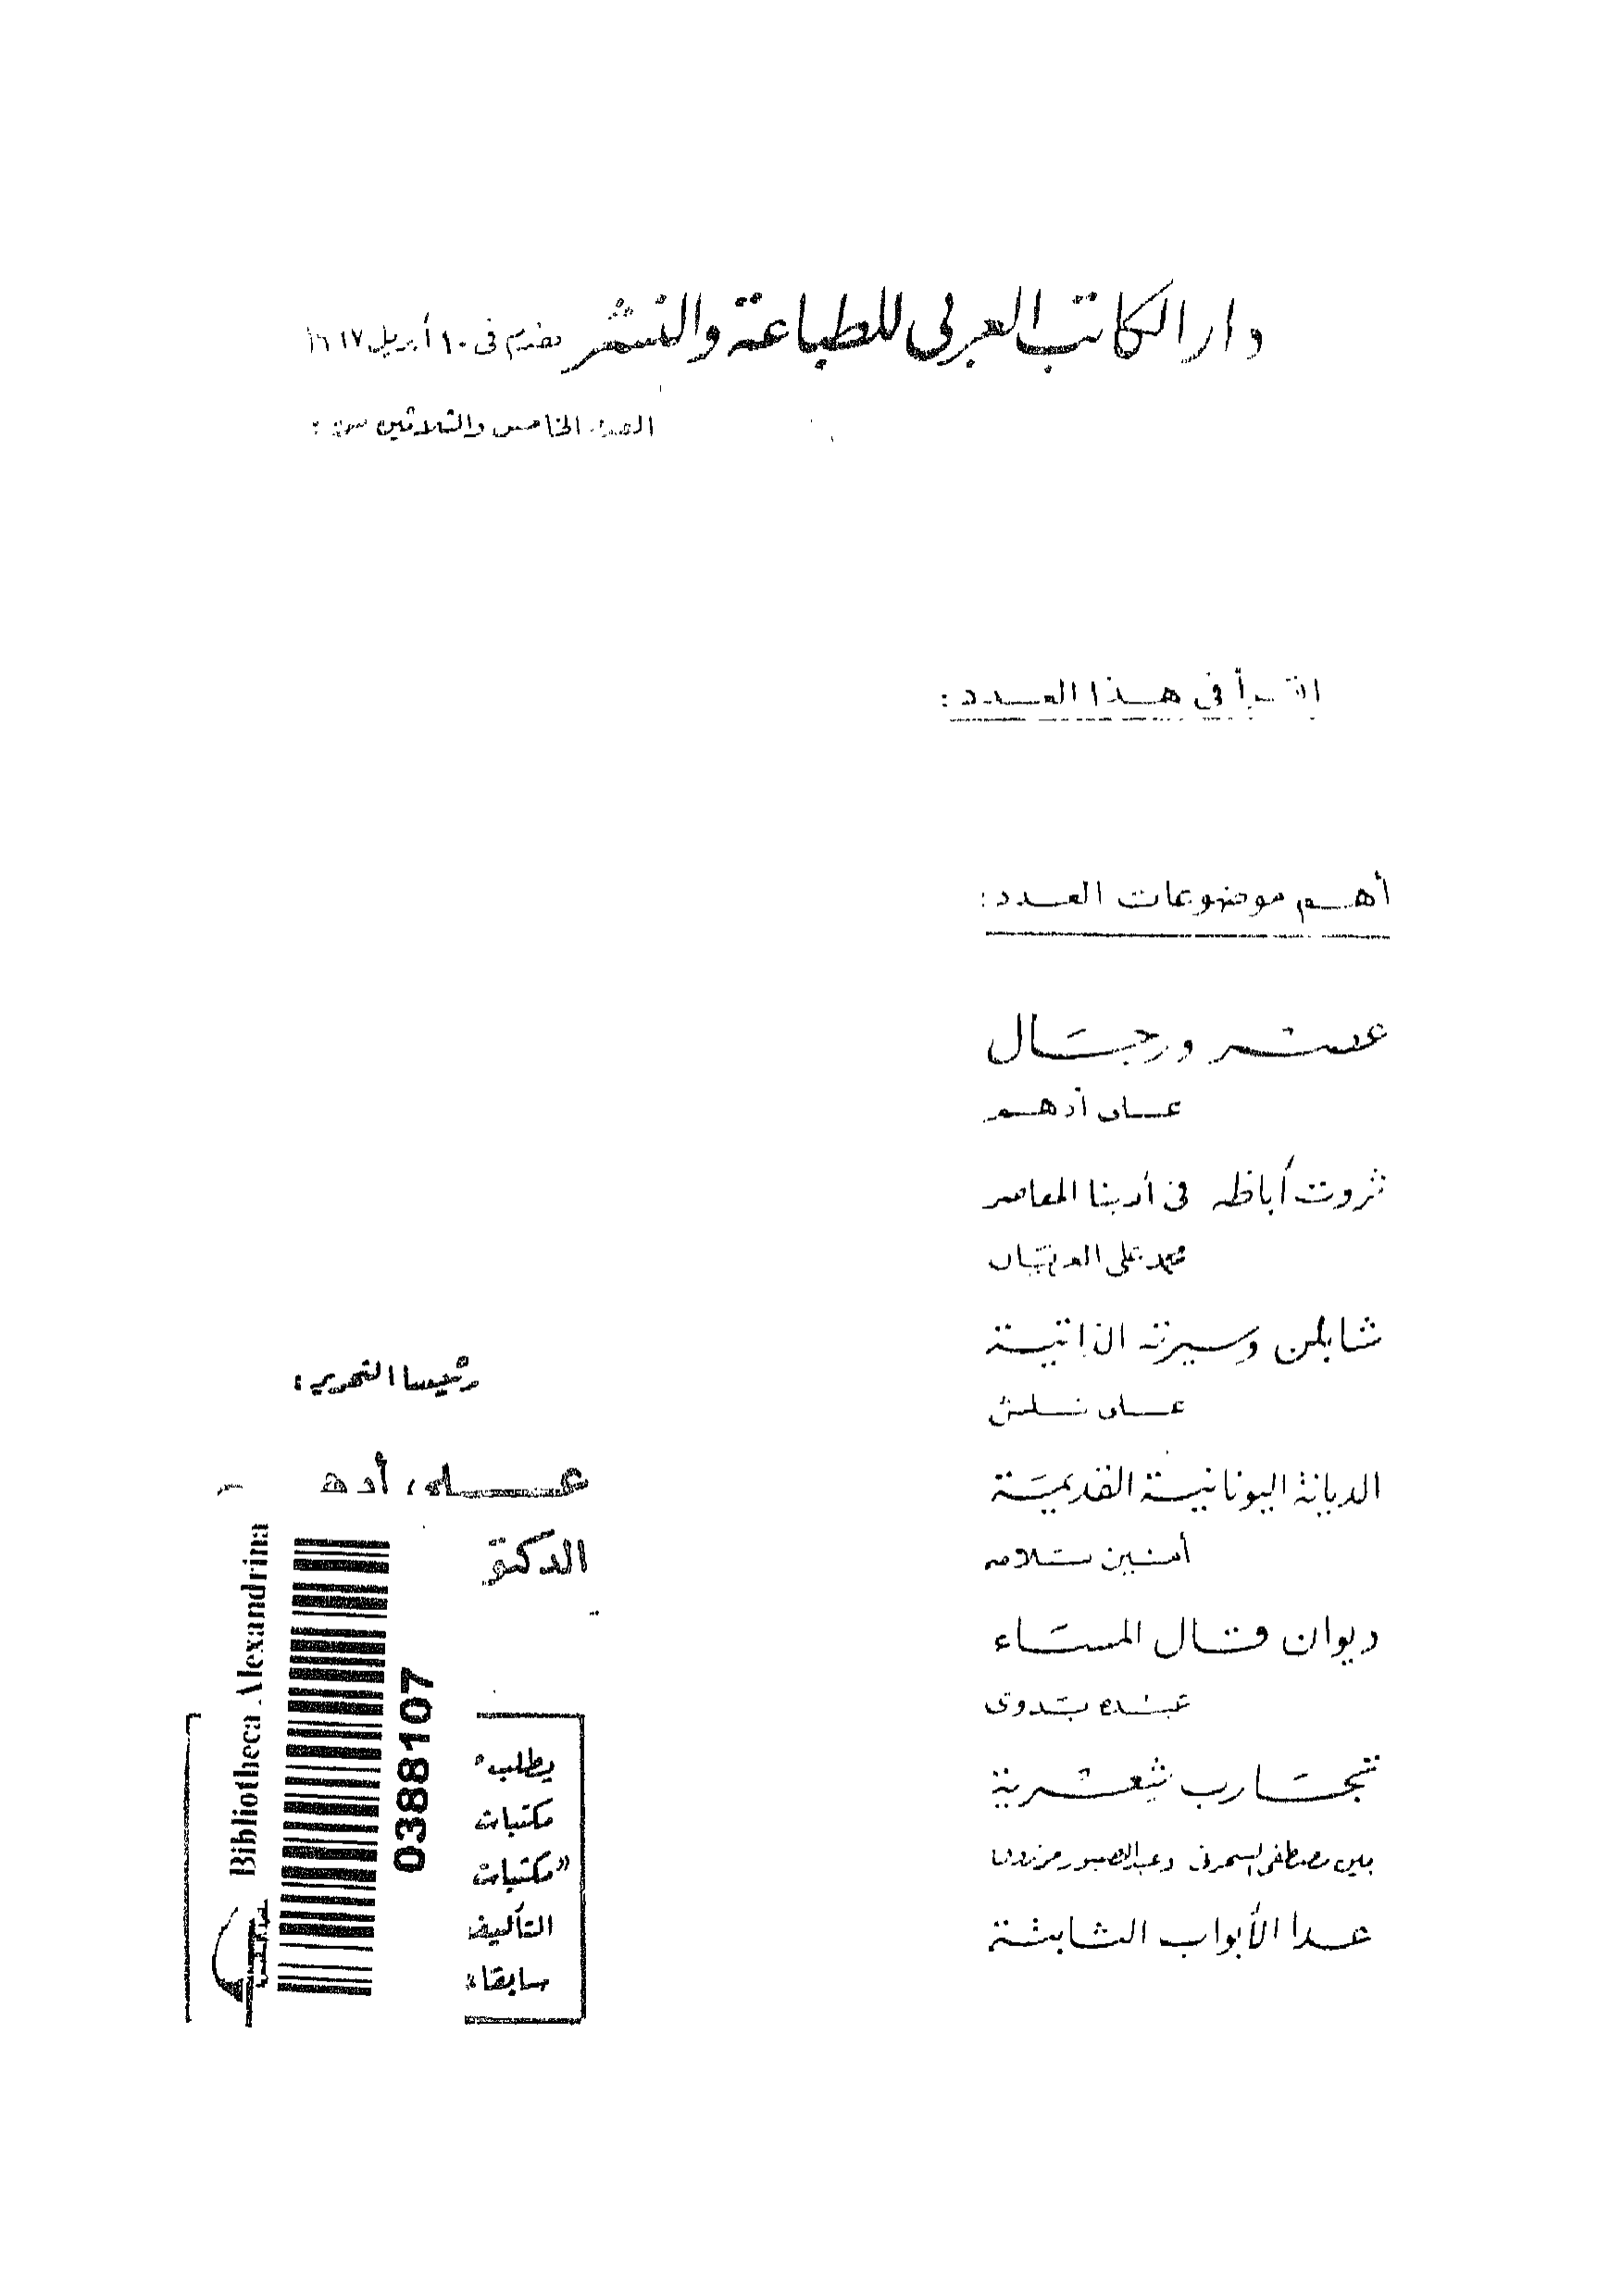 دار الكاتب العربى للطباعة والنشر تقدم فى ١٠ أبريل
العدد الخامس والثلاثين من :
اقرأ فى هذا العدد :
أهم موضوعات العدد :
عصر ورجال
على أدهم
ثروت أباظه فى أدبنا المعاصر
محمد على
شابلن وسيرته الذاتية
على شلش
الديانة اليونانية القديمة
أمين سلامه
ديوان قال المساء
عبده بدوى
تجارب شعرية
بين مصطفى السحرتى وعبد الصبور مرزوق
عدا الأبواب الثابتة
رئيسا التحرير :
على أدهـ
الدكتو
يطلب
مكتبات
«مكتبات
التأليف
سابقا»
Bibliotheca Alexandrina
0388107